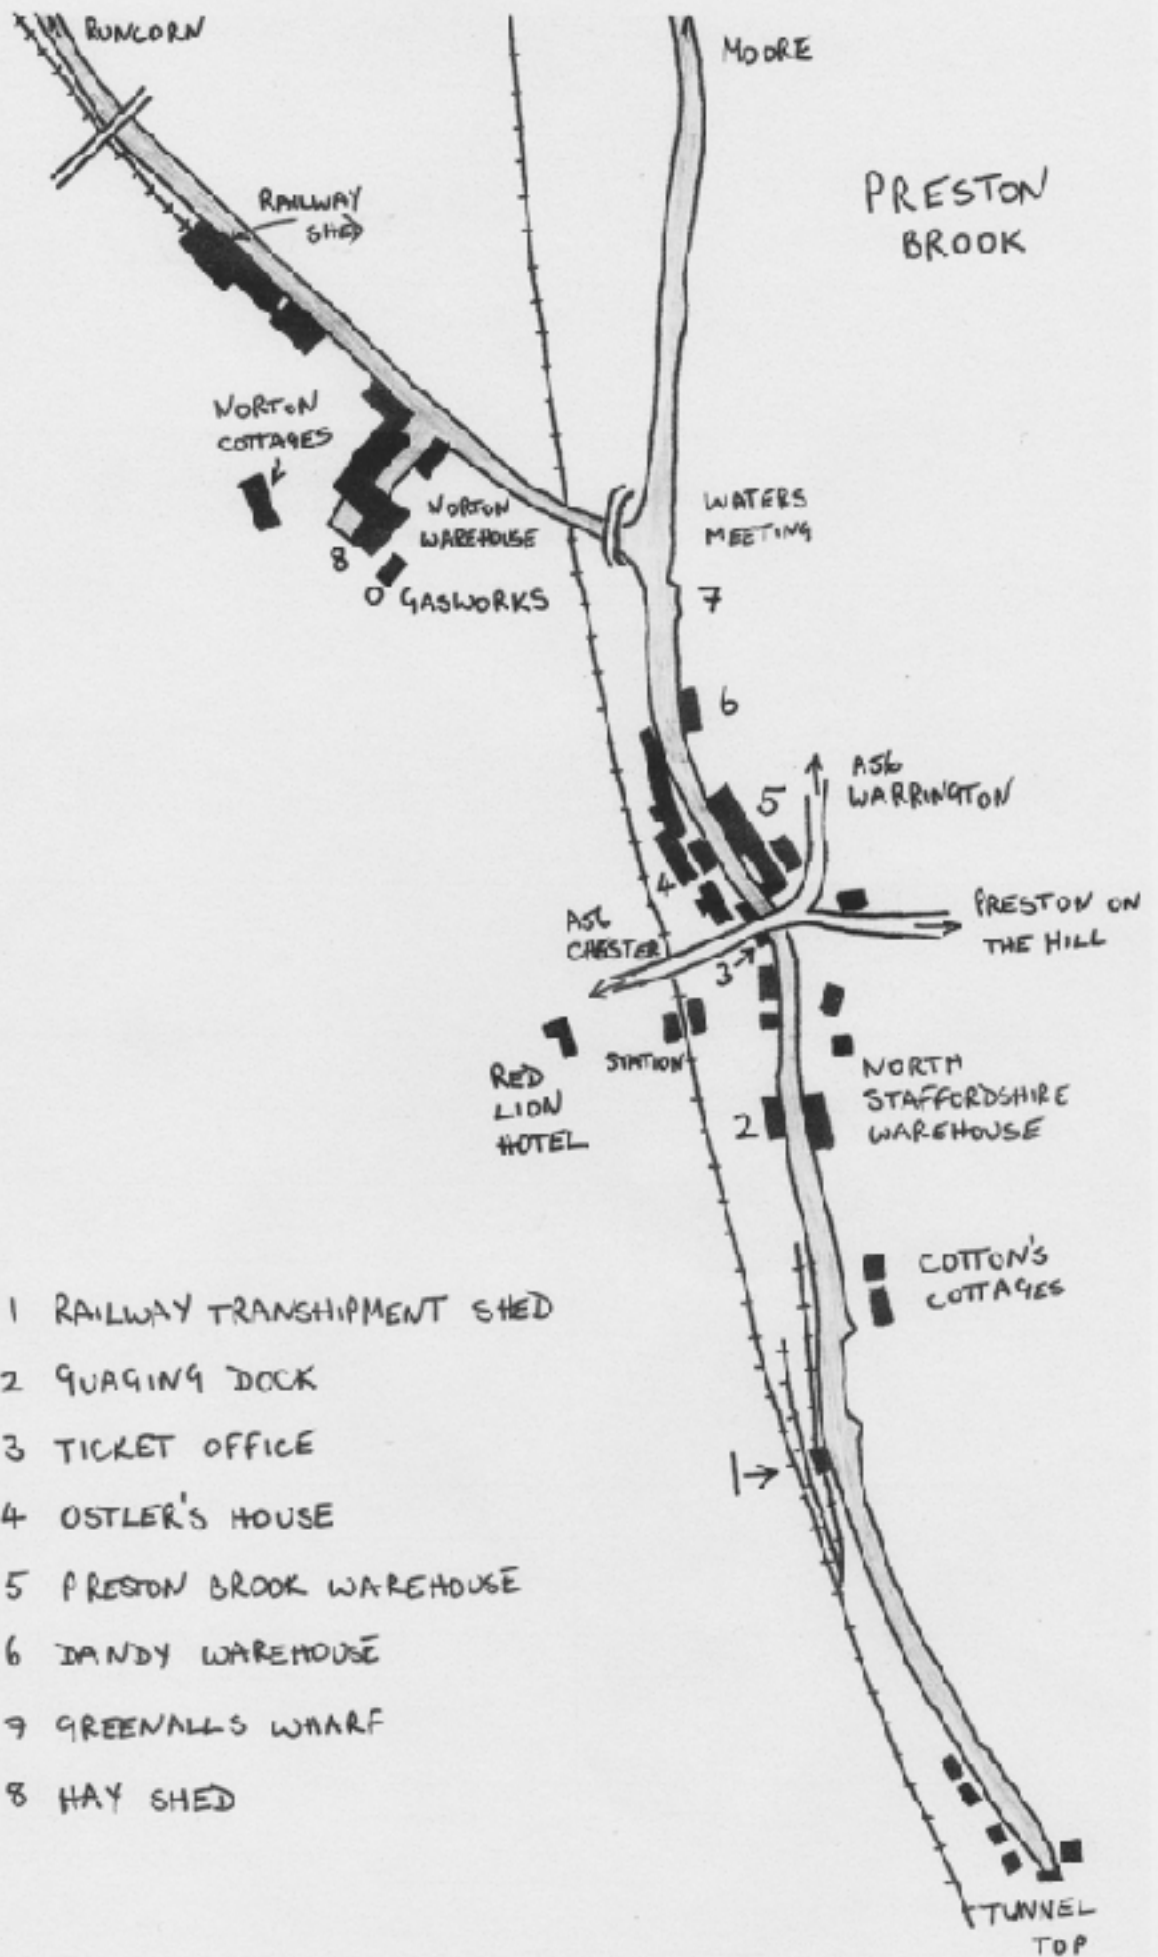 RUNCORN
MOORE
PRESTON
BROOK
RAILWAY
SHED
NORTON
COTTAGES
NORTON
WAREHOUSE
8
GASWORKS
WATERS
MEETING
7
6
5
A56
WARRINGTON
4
A56
CHESTER
PRESTON ON
THE HILL
3
STATION
RED
LION
HOTEL
2
NORTH
STAFFORDSHIRE
WAREHOUSE
COTTON'S
COTTAGES
1
1 RAILWAY TRANSHIPMENT SHED
2 GUAGING DOCK
3 TICKET OFFICE
4 OSTLER'S HOUSE
5 PRESTON BROOK WAREHOUSE
6 DANDY WAREHOUSE
7 GREENALLS WHARF
8 HAY SHED
TUNNEL
TOP